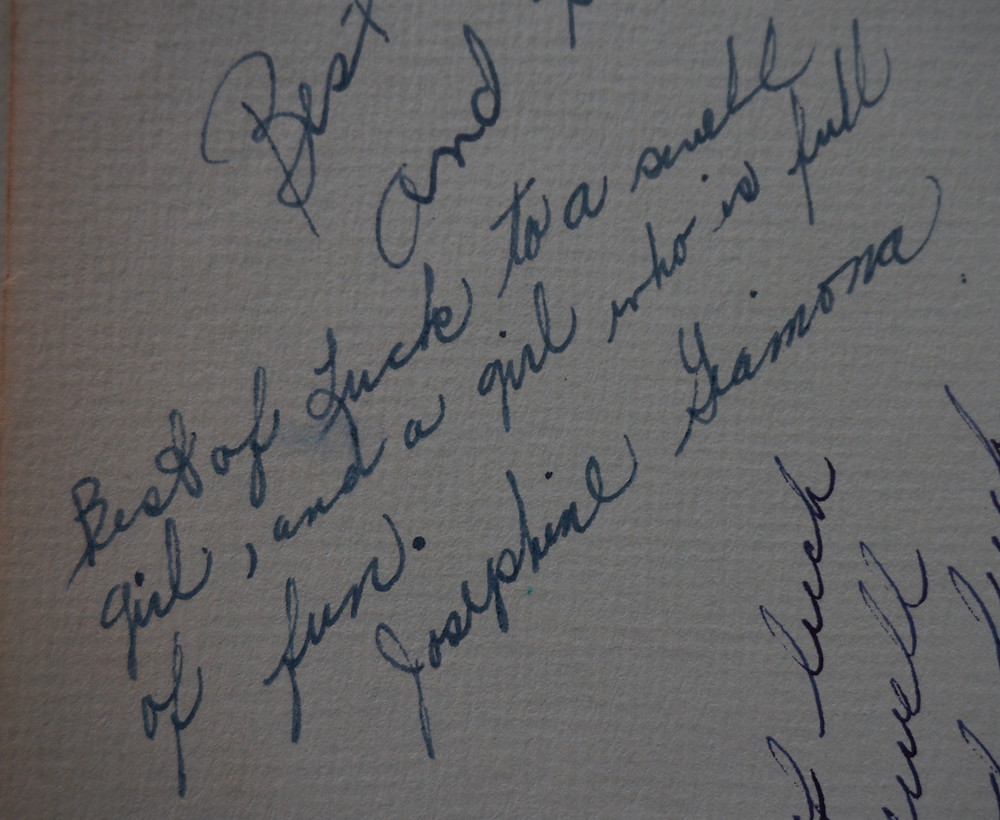 Best
and
Best of Luck to a swell
girl, and a girl who is full
of fun.
Josephine Giamona
luck
swell